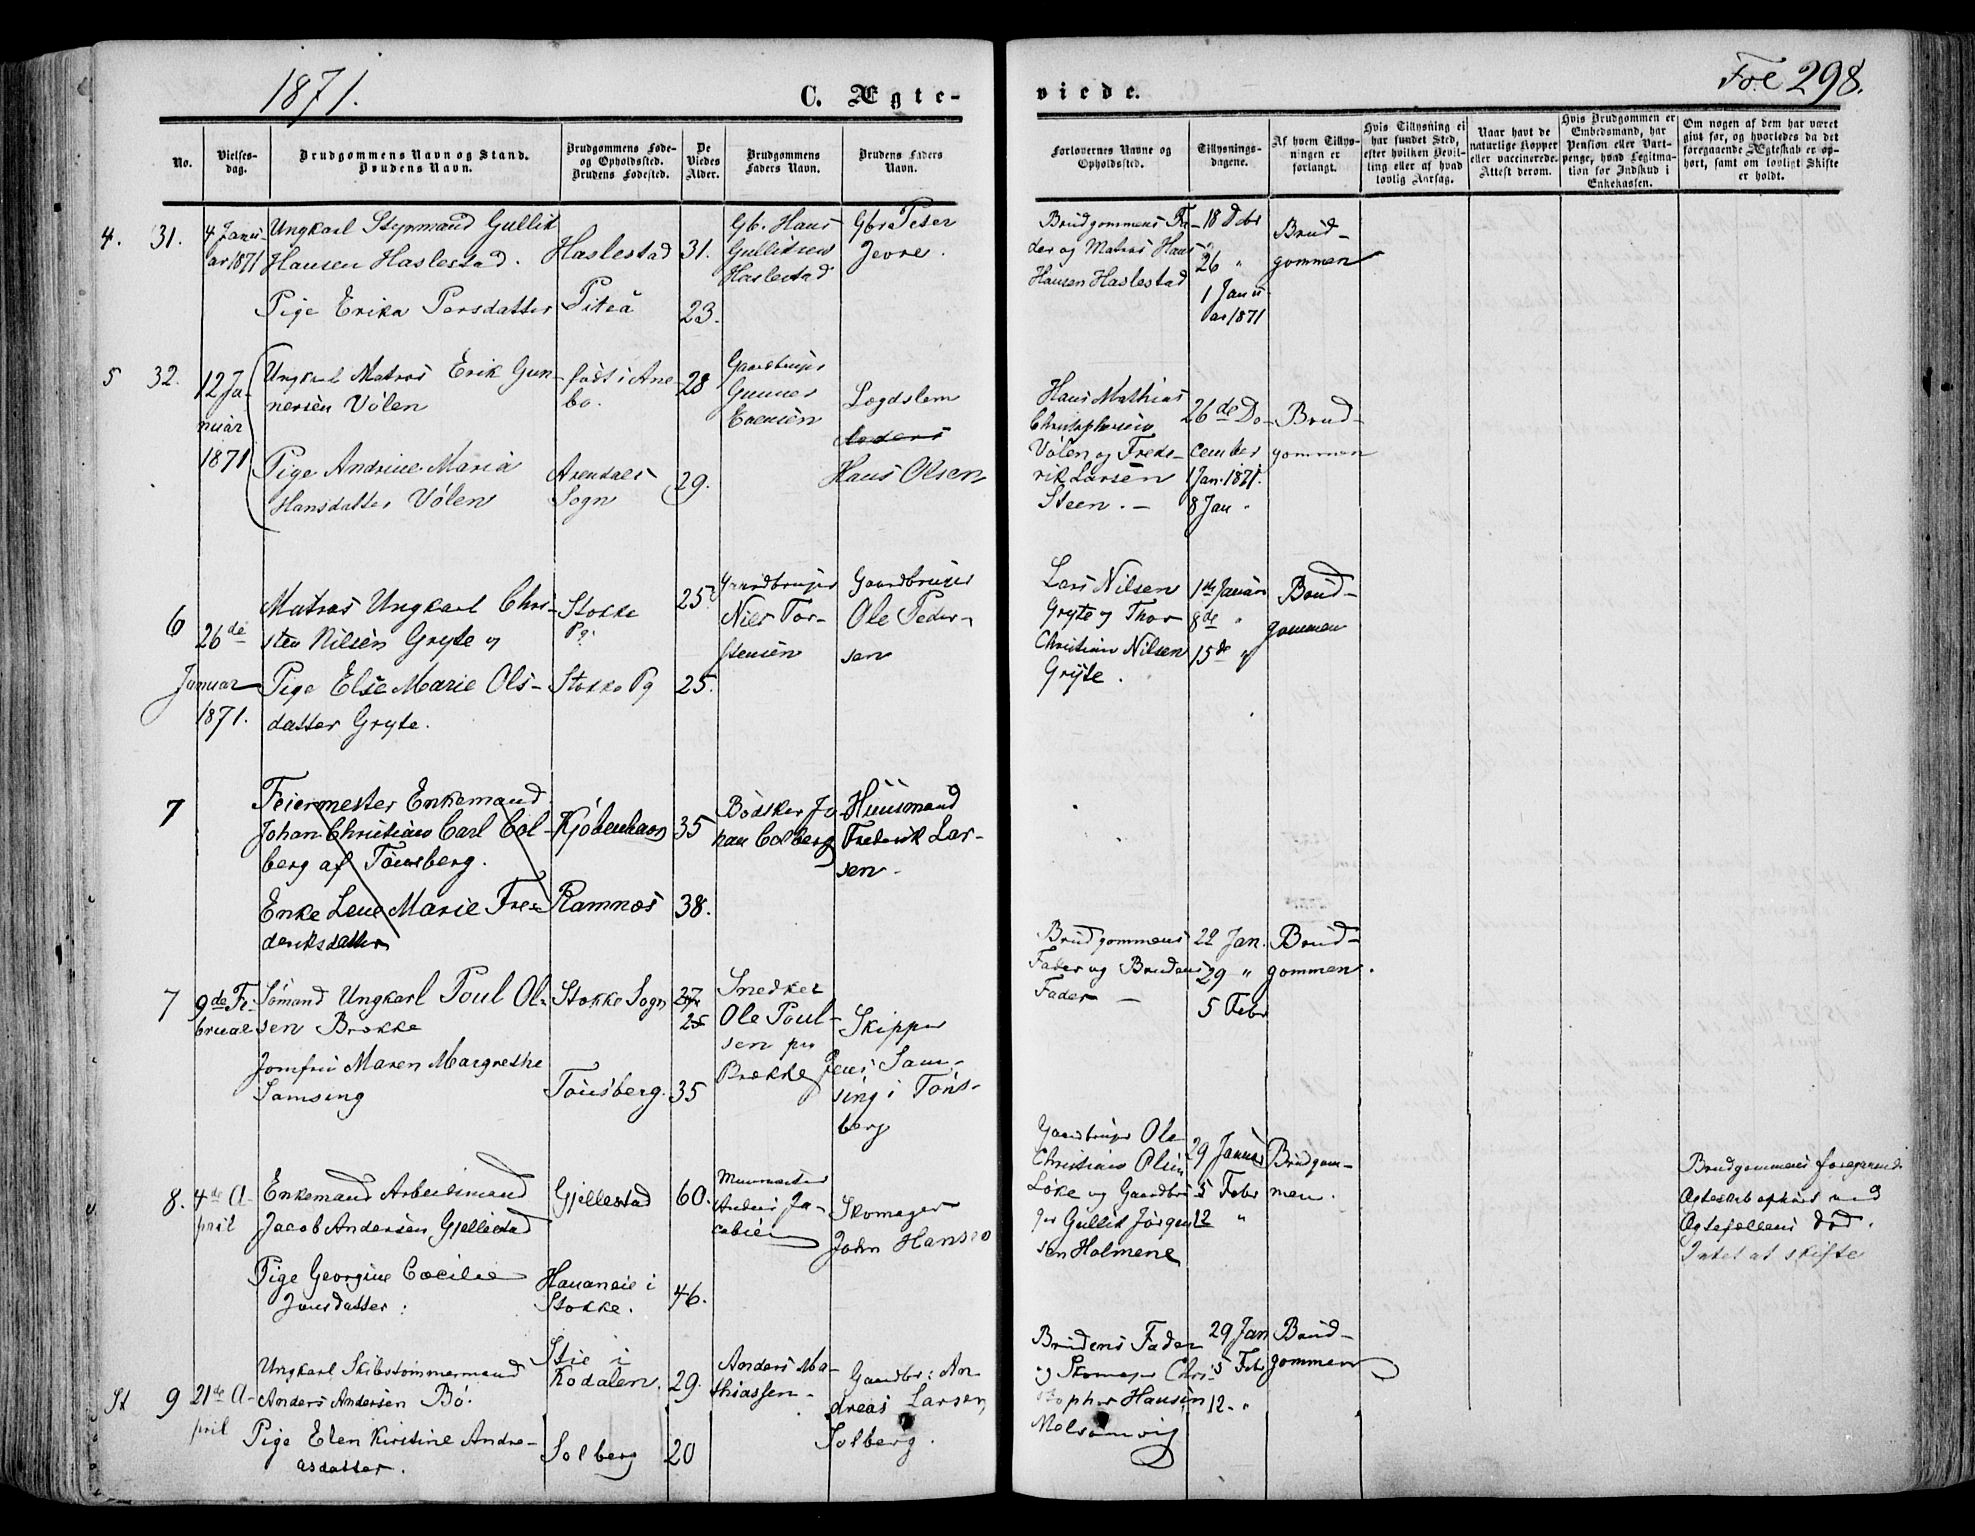 1871.
C. Ægte-
viede.
Fol 298.
No.
Vielses-
dag.
Brudgommens Navn og Stand.
Brudens Navn.
Brudgommens Føde-
og Opholdssted.
Brudens Fødested.
De
Viedes
Alder.
Brudgommens
Faders Navn.
Brudens Faders
Navn.
Forlovernes Navne og
Opholdssted.
Tillysnings-
dagene.
Af hvem Tillys-
ningen er
forlangt.
Hvis Tillysning ei
har fundet Sted,
efter hvilken Bevil-
ling eller af hvad
lovlig Aarsag.
Naar havt de
naturlige Kopper
eller vaccinerede.
Attest derom.
Hvis Brudgommen er
Embedsmand, har
Pension eller Vart-
penge, hvad Legitima-
tion for Indskud i
Enkekassen.
Om nogen af dem har været
gift før, og hvorledes da det
foregaaende Ægteskab er op-
hørt, samt om lovligt Skifte
er holdt.
4. 31.
4 Janu-
ar 1871
Ungkarl Styrmand Gullik
Hansen Haslestad.
Pige Erika Persdatter
Haslestad
Piteå
31.
23.
Gb. Hans
Gulliksen
Haslestad
Gbr Peter
Jevre.
Brudgommens Fa-
der og Matros Hans
Hansen Haslestad
18 Debr
26 "
1 Janu
ar 1871
Brud-
gommen
5 32.
12 Ja-
nuar
1871
Ungkarl Matros Erik Gun-
nersen Vølen
Pige Andrine Maria
Hansdatter Vølen
født i Ane-
bo.
Arendals
Sogn
28
29.
Gaardbruger
Gunner
Evensen
Lægdslem
Anders
Hans Olsen
Hans Mathias
Christophersen
Vølen og Frede-
rik Larsen
Steen. -
26de De-
cember
1 Jan. 1871.
8 Jan "
Brud-
gommen
6
26de
Januar
1871.
Matros Ungkarl Chri-
sten Nilsen Gryte og
Pige Else Marie Ols-
datter Gryte.
Stokke
Pg.
Stokke Pg
25
25.
Gaardbruger
Niels Tor-
stensen
Gaardbruger
Ole Peder-
sen
Lars Nilsen
Gryte og Thor
Christian Nilsen
Gryte.
1ste Januar
8de "
15de "
Brud-
gommen
7
Feiermester Enkemand
Johan Christian Carl Col-
berg af Tønsberg.
Enke Lene Marie Fre-
deriksdatter
Kjøbenhavn
Ramnes
35
38.
Bødsker Jo
han Colberg
Huusmand
Frederik Lar-
sen.
7
9de Fe-
bruar
Sømand Ungkarl Poul Ol-
sen Brekke
Jomfru Maren Margrethe
Samsing
Stokke Sogn
Tønsberg.
27
25
35
Snedker
Ole Poul-
sen paa
Brekke
Skipper
Jens Sam-
sing i Tøns-
berg
Brudgommens
Fader og Brudens
Fader -
22 Jan.
29 "
5 Febr
Brud-
gommen.
8.
4de A-
pril
Enkemand Arbeidsmand
Jacob Andersen Gjellestad
Pige Georgine Cæcilie
Jonsdatter:
Gjellestad
Hauaneie i
Stokke.
60.
46.
Muurmester
Anders Ja-
cobsen
Skomager
John Hansen
Gaardbruger Ole
Christian Olsen
Løke og Gaardbru-
ger Gullik Jørgen
sen Holmene
29 Januar
5 Febr
12 "
Brudgom-
men.
Brudgommens foregaaende
Ægteskab ophørt ved
Ægtefællens død.
Intet at skifte
St 9
21de A-
pril
Ungkarl Skibstømmermand
Anders Andersen Bø.
Pige Elen Kirstine Andre-
asdatter.
Stie i
Kodalen.
Solberg
29.
20
Anders Ma-
thiassen-
Gaardbr: An-
dreas Larsen
Solberg.
Brudens Fader
og Skomager Chri-
stopher Hansen
Melsomvig
29 Jan
5 Febr
12. "
Brud-
gommen